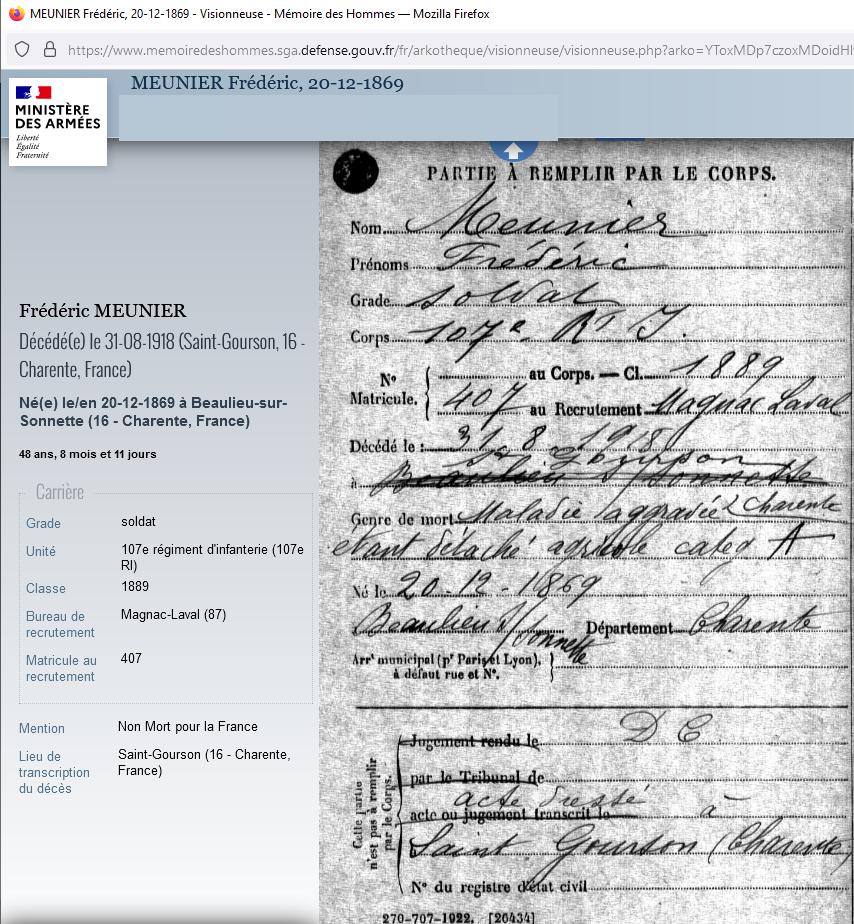 MEUNIER Frédéric, 20-12-1869 - Visionneuse - Mémoire des Hommes — Mozilla Firefox
https://www.memoiredeshommes.sga.defense.gouv.fr/fr/arkotheque/visionneuse/visionneuse.php?arko=YToxMDp7czoxMDoidHl
MEUNIER Frédéric, 20-12-1869
MINISTÈRE
DES ARMÉES
Liberté
Égalité
Fraternité
Frédéric MEUNIER
Décédé(e) le 31-08-1918 (Saint-Gourson, 16 -
Charente, France)
Né(e) le/en 20-12-1869 à Beaulieu-sur-
Sonnette (16 - Charente, France)
48 ans, 8 mois et 11 jours
Carrière
Grade soldat
Unité 107e régiment d'infanterie (107e
RI)
Classe 1889
Bureau de Magnac-Laval (87)
recrutement
Matricule au 407
recrutement
Mention Non Mort pour la France
Lieu de Saint-Gourson (16 - Charente,
transcription France)
du décès
PARTIE À REMPLIR PAR LE CORPS.
Nom Meunier
Prénoms Frédéric
Grade soldat
Corps 107e Rt I.
No
Matricule.
au Corps. — Cl. 1889
407 au Recrutement Magnac Laval
Décédé le : 31-8-1918
St Gourson
à Beaulieu S/Sonnette
Genre de mort Maladie aggravée Charente
étant détaché agricole categ A
Né le 20-12-1869
Beaulieu S/Sonnette Département Charente
Arrt municipal (pr Paris et Lyon),
à défaut rue et No.
Cette partie
n'est pas à remplir
par le Corps.
Jugement rendu le D C
par le Tribunal de
acte dressé à
acte ou jugement transcrit le
Saint Gourson (Charente)
No du registre d'état civil
270-707-1922. [26434]